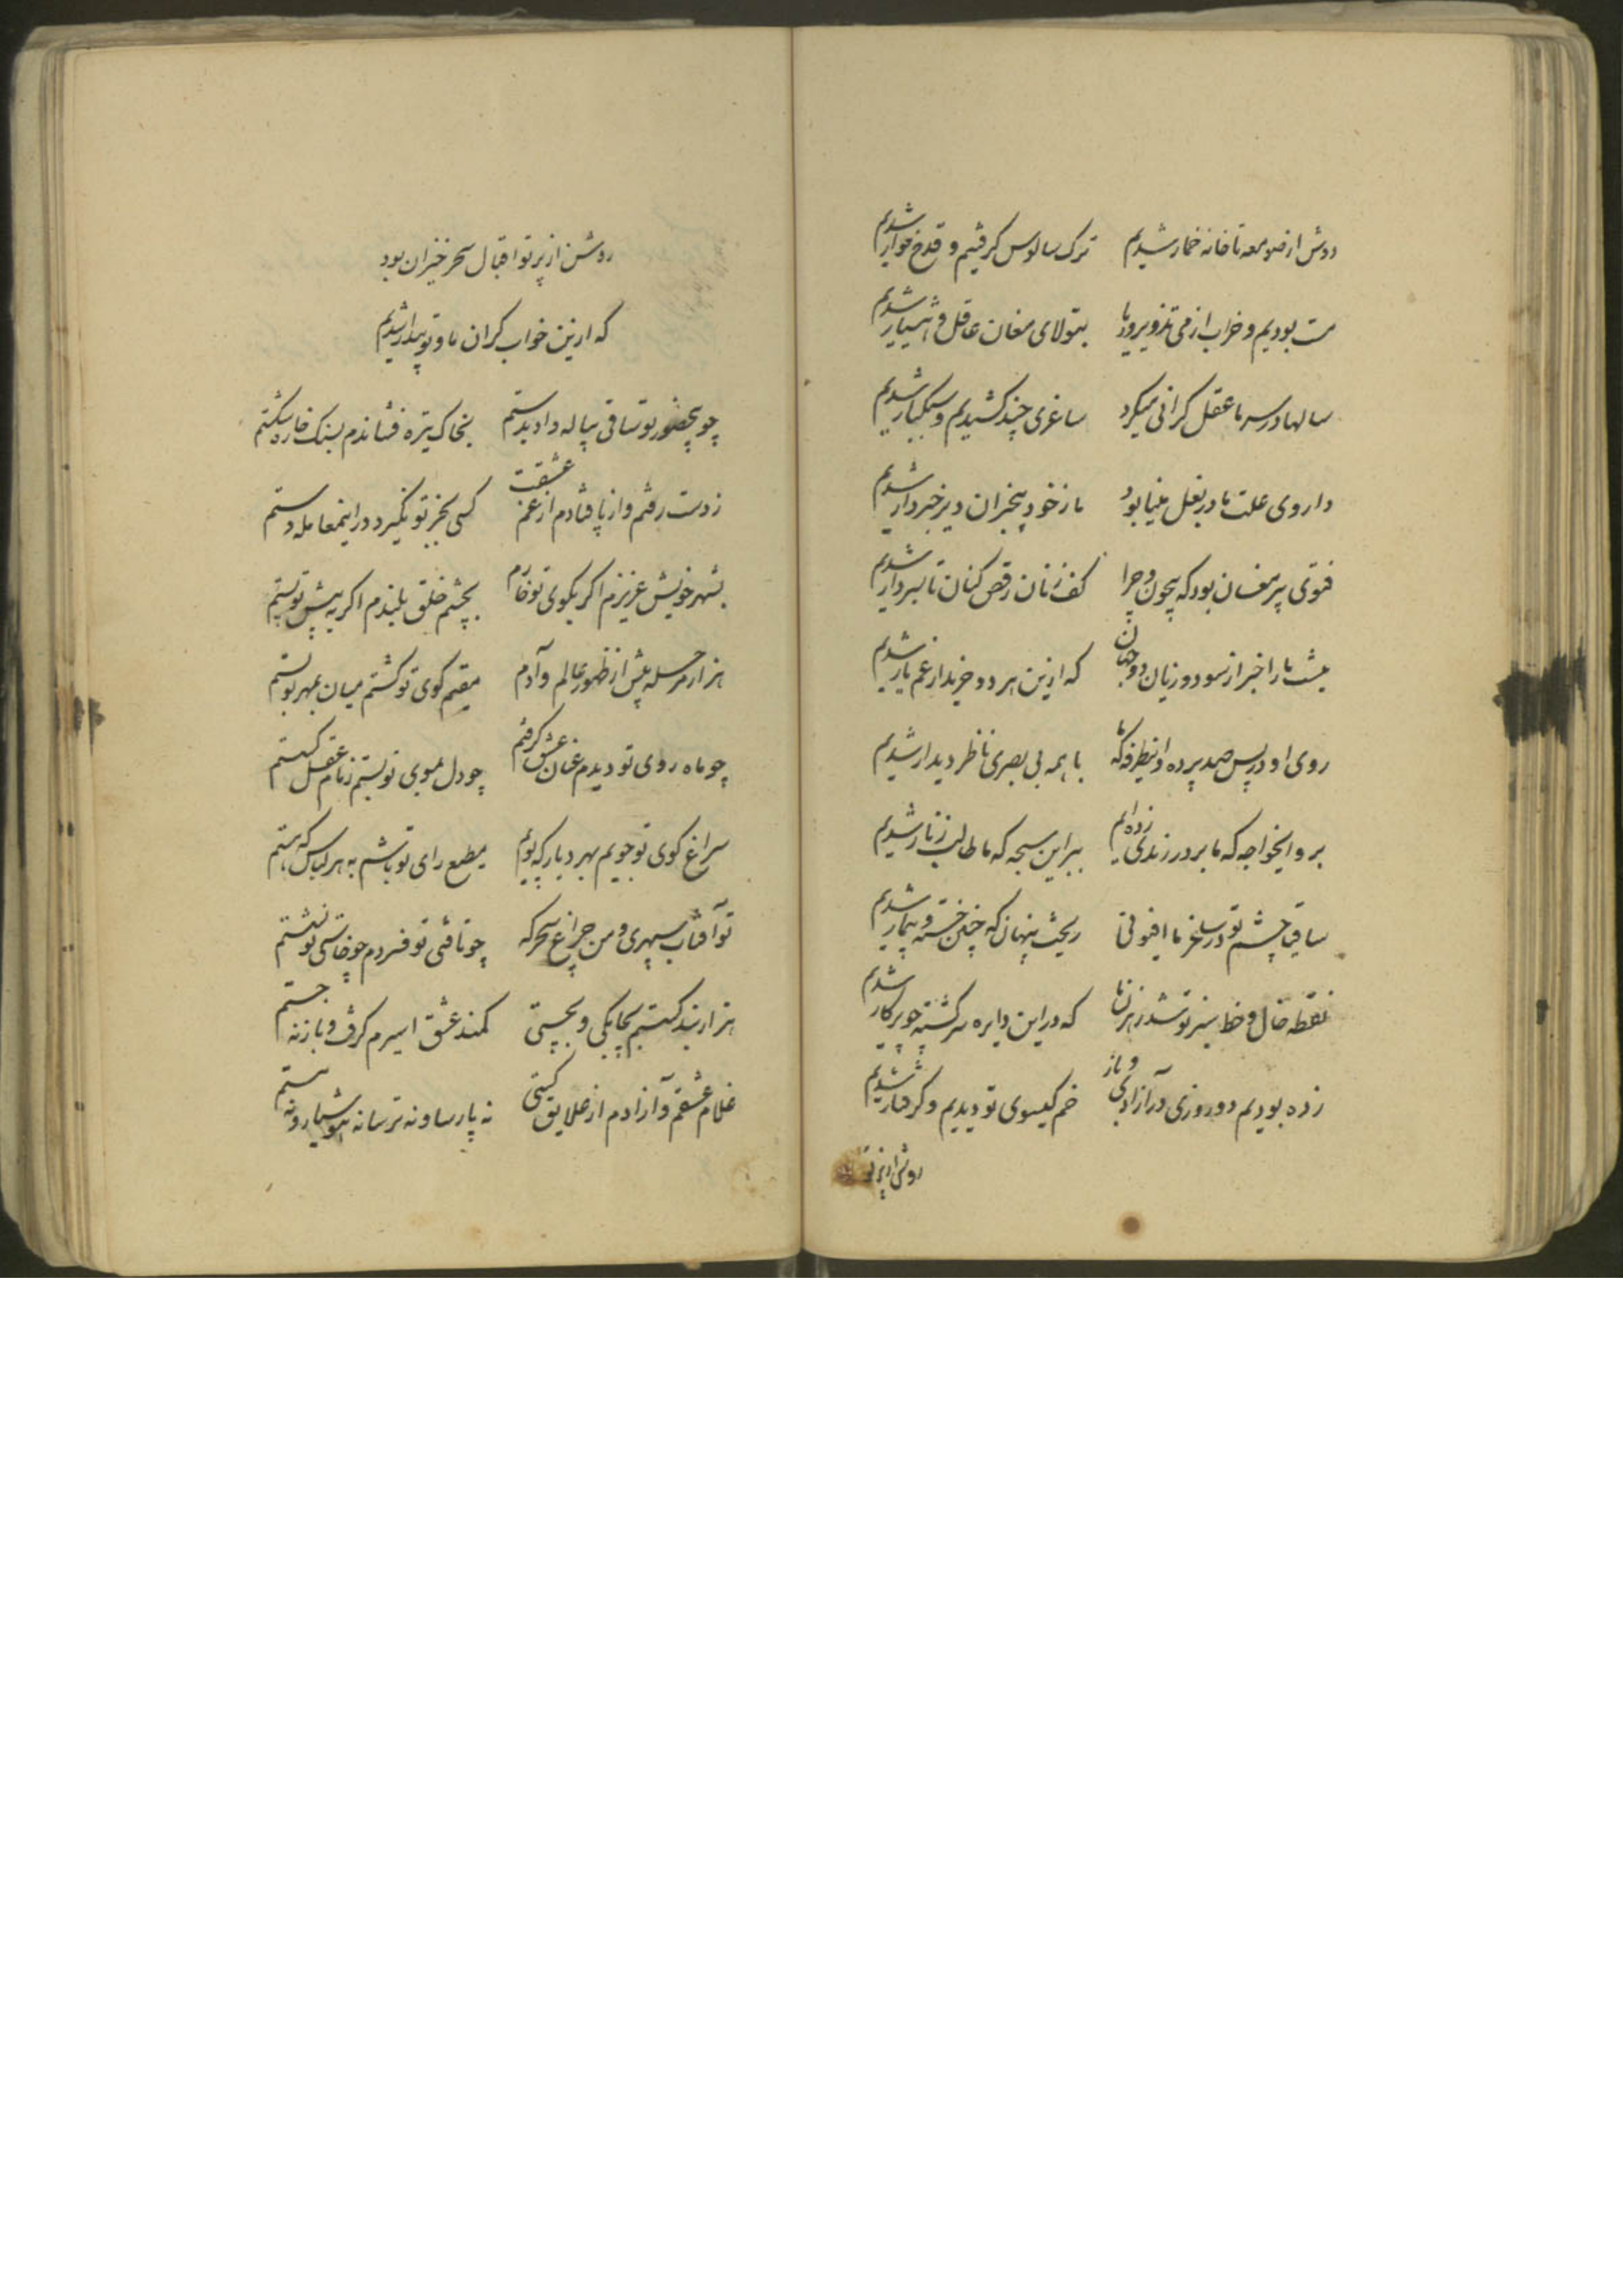 دوش از صومعه تا خانه خمار شدیم ترک سالوس کرفتیم و قدح خوار شدیم
مست بودیم و خراب از می تزویر و ریا بتولای مغان عاقل و هشیار شدیم
سالها در سر ما عقل کرانی میکرد ساغری چند کشیدیم و سبکبار شدیم
داروی علت ما در بغل مینا بود ما ز خود بیخبران دیر خبردار شدیم
فتوی پیر مغان بود که بیچون و چرا کف زنان رقص کنان تا بسر دار شدیم
نیست ما را خبر از سود و زیان دو جهان که ازین هر دو خریدار غم یار شدیم
روی او در پس صد پرده و اینطرفه که ما با همه بی بصری ناظر دیدار شدیم
برو ایخواجه که ما بر در رندی زده ایم ببر این سبحه که ما طالب زنار شدیم
ساقیا چشم تو در ساغر ما افیونی ریخت پنهان که چنین خسته و بیمار شدیم
نقطه خال و خط سبز تو شد رهزن ما که در این دایره سرکشته چو پرکار شدیم
زده بودیم دو روزی در آزادکی و باز خم کیسوی تو دیدیم و کرفتار شدیم
روشن از پرتو
روشن از پرتو اقبال سحر خیزان بود
که ازین خواب کران ما و تو بیدار شدیم
چو بیحضور تو ساقی پیاله داد بدستم بخاک تیره فشاندم بسنک خاره شکستم
ز دست رفتم و از پا فتادم از غم عشقت کسی بجز تو نکیرد در اینمعامله دستم
بشهر خویش عزیزم اکر بکوی تو خارم بچشم خلق بلندم اکر به پیش تو پستم
هزار مرحله پیش از ظهور عالم و آدم مقیم کوی تو کشتم میان بمهر تو بستم
چو ماه روی تو دیدم عنان عشق کرفتم چو دل بموی تو بستم زمام عقل کسستم
سراغ کوی تو جویم بهر دیار که پویم مطیع رای تو باشم به هر لباس که هستم
تو آفتاب سپهری و من چراغ سحرکه چو تافتی تو فسردم چو خاستی تو نشستم
هزار بند کسستم بچابکی و بچستی کمند عشق اسیرم کرفت و باز نه جستم
غلام عشقم و آزادم از علایق کیتی نه پارسا و نه ترسا نه هوشیار و نه مستم